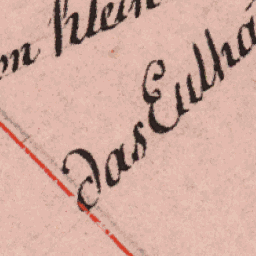 en klein
das Eulhä